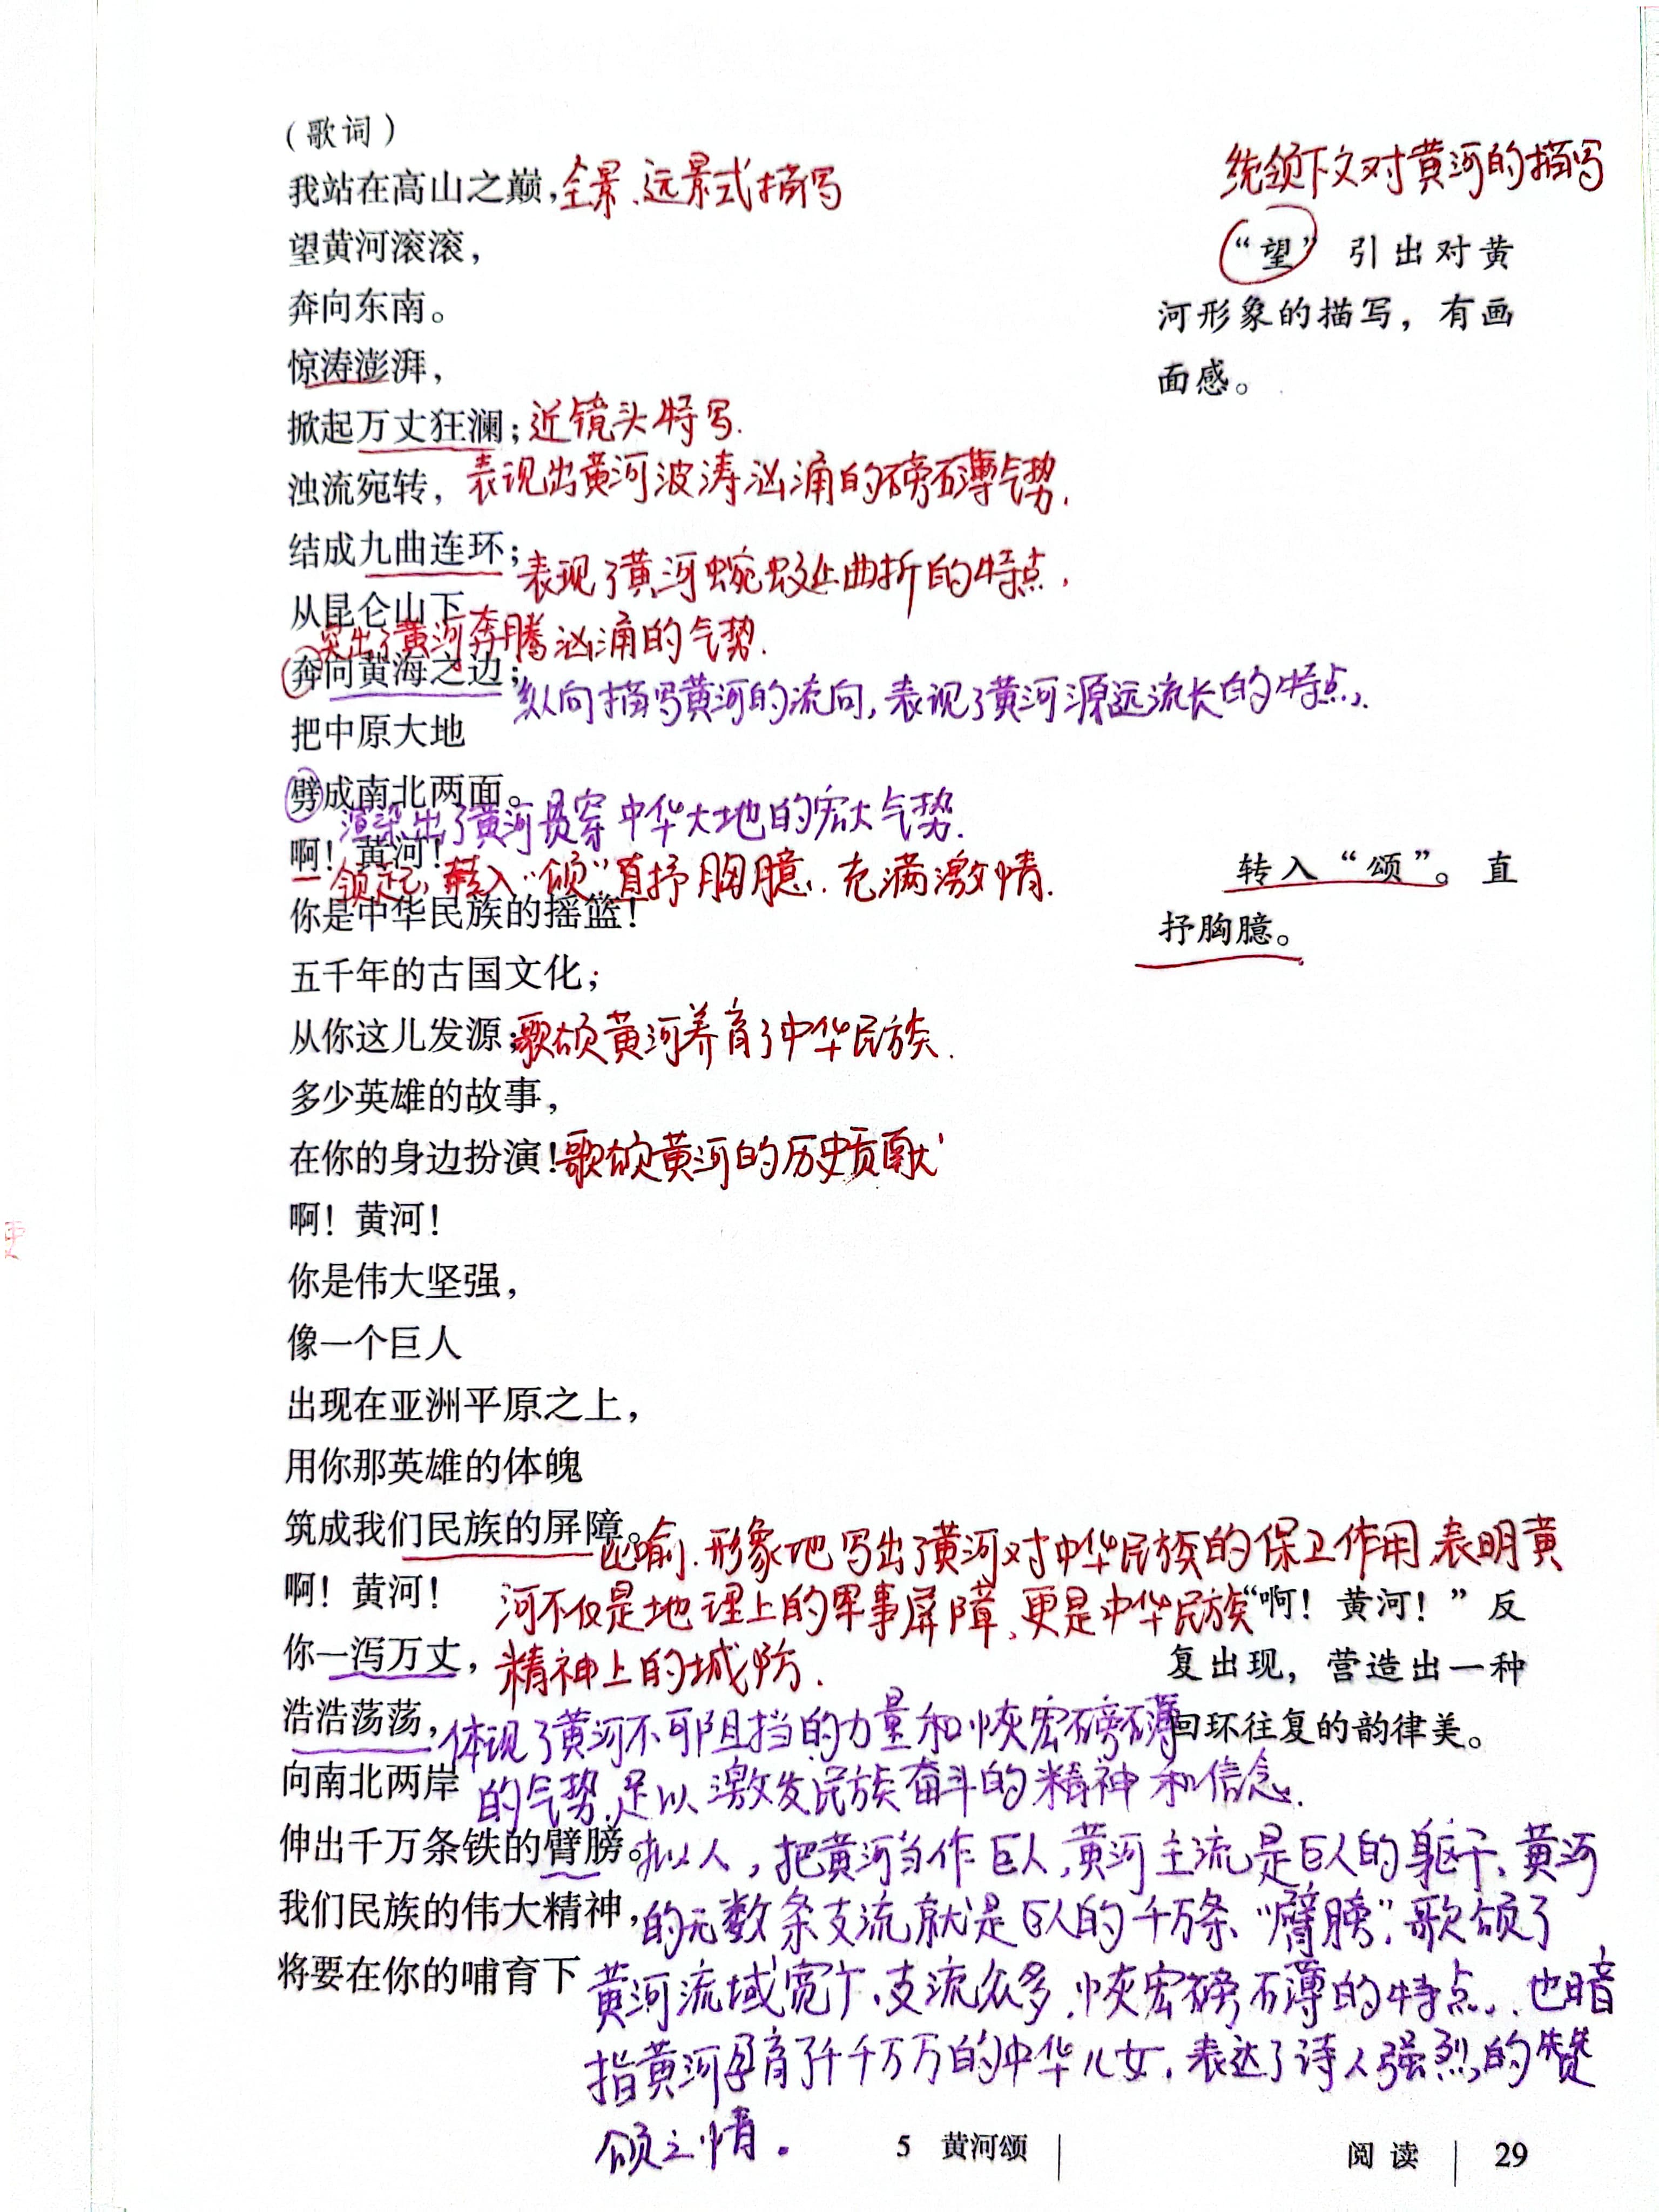 （歌词）
我站在高山之巅，全景、远景式描写
统领下文对黄河的描写
望黄河滚滚，
“望”引出对黄
奔向东南。
河形象的描写，有画
惊涛澎湃，
面感。
掀起万丈狂澜；近镜头特写.
浊流宛转，表现出黄河波涛汹涌的磅礴气势.
结成九曲连环；表现了黄河蜿蜒曲折的特点.
从昆仑山下
突出了黄河奔腾汹涌的气势.
奔向黄海之边；纵向描写黄河的流向,表现了黄河源远流长的特点.
把中原大地
劈成南北两面。
渲染出了黄河贯穿中华大地的宏大气势.
啊！黄河！
转入“颂”。直
领起,转入“颂”直抒胸臆.充满激情.
你是中华民族的摇篮！
抒胸臆。
五千年的古国文化；
从你这儿发源；歌颂黄河养育了中华民族.
多少英雄的故事，
在你的身边扮演！歌颂黄河的历史贡献
啊！黄河！
你是伟大坚强，
像一个巨人
出现在亚洲平原之上，
用你那英雄的体魄
筑成我们民族的屏障。比喻.形象地写出了黄河对中华民族的保卫作用.表明黄
啊！黄河！河不仅是地理上的军事屏障,更是中华民族
“啊！黄河！”反
你一泻万丈，精神上的城防.
复出现，营造出一种
浩浩荡荡，体现了黄河不可阻挡的力量和恢宏磅礴
回环往复的韵律美。
向南北两岸 的气势,足以激发民族奋斗的精神和信念.
伸出千万条铁的臂膀。拟人,把黄河当作巨人,黄河主流是巨人的躯干、黄河
我们民族的伟大精神，的无数条支流就是巨人的千万条“臂膀”.歌颂了
将要在你的哺育下 黄河流域宽广、支流众多.恢宏磅礴的特点.也暗
指黄河孕育了千千万万的中华儿女.表达了诗人强烈的赞
颂之情.
5 黄河颂
阅读 29
更